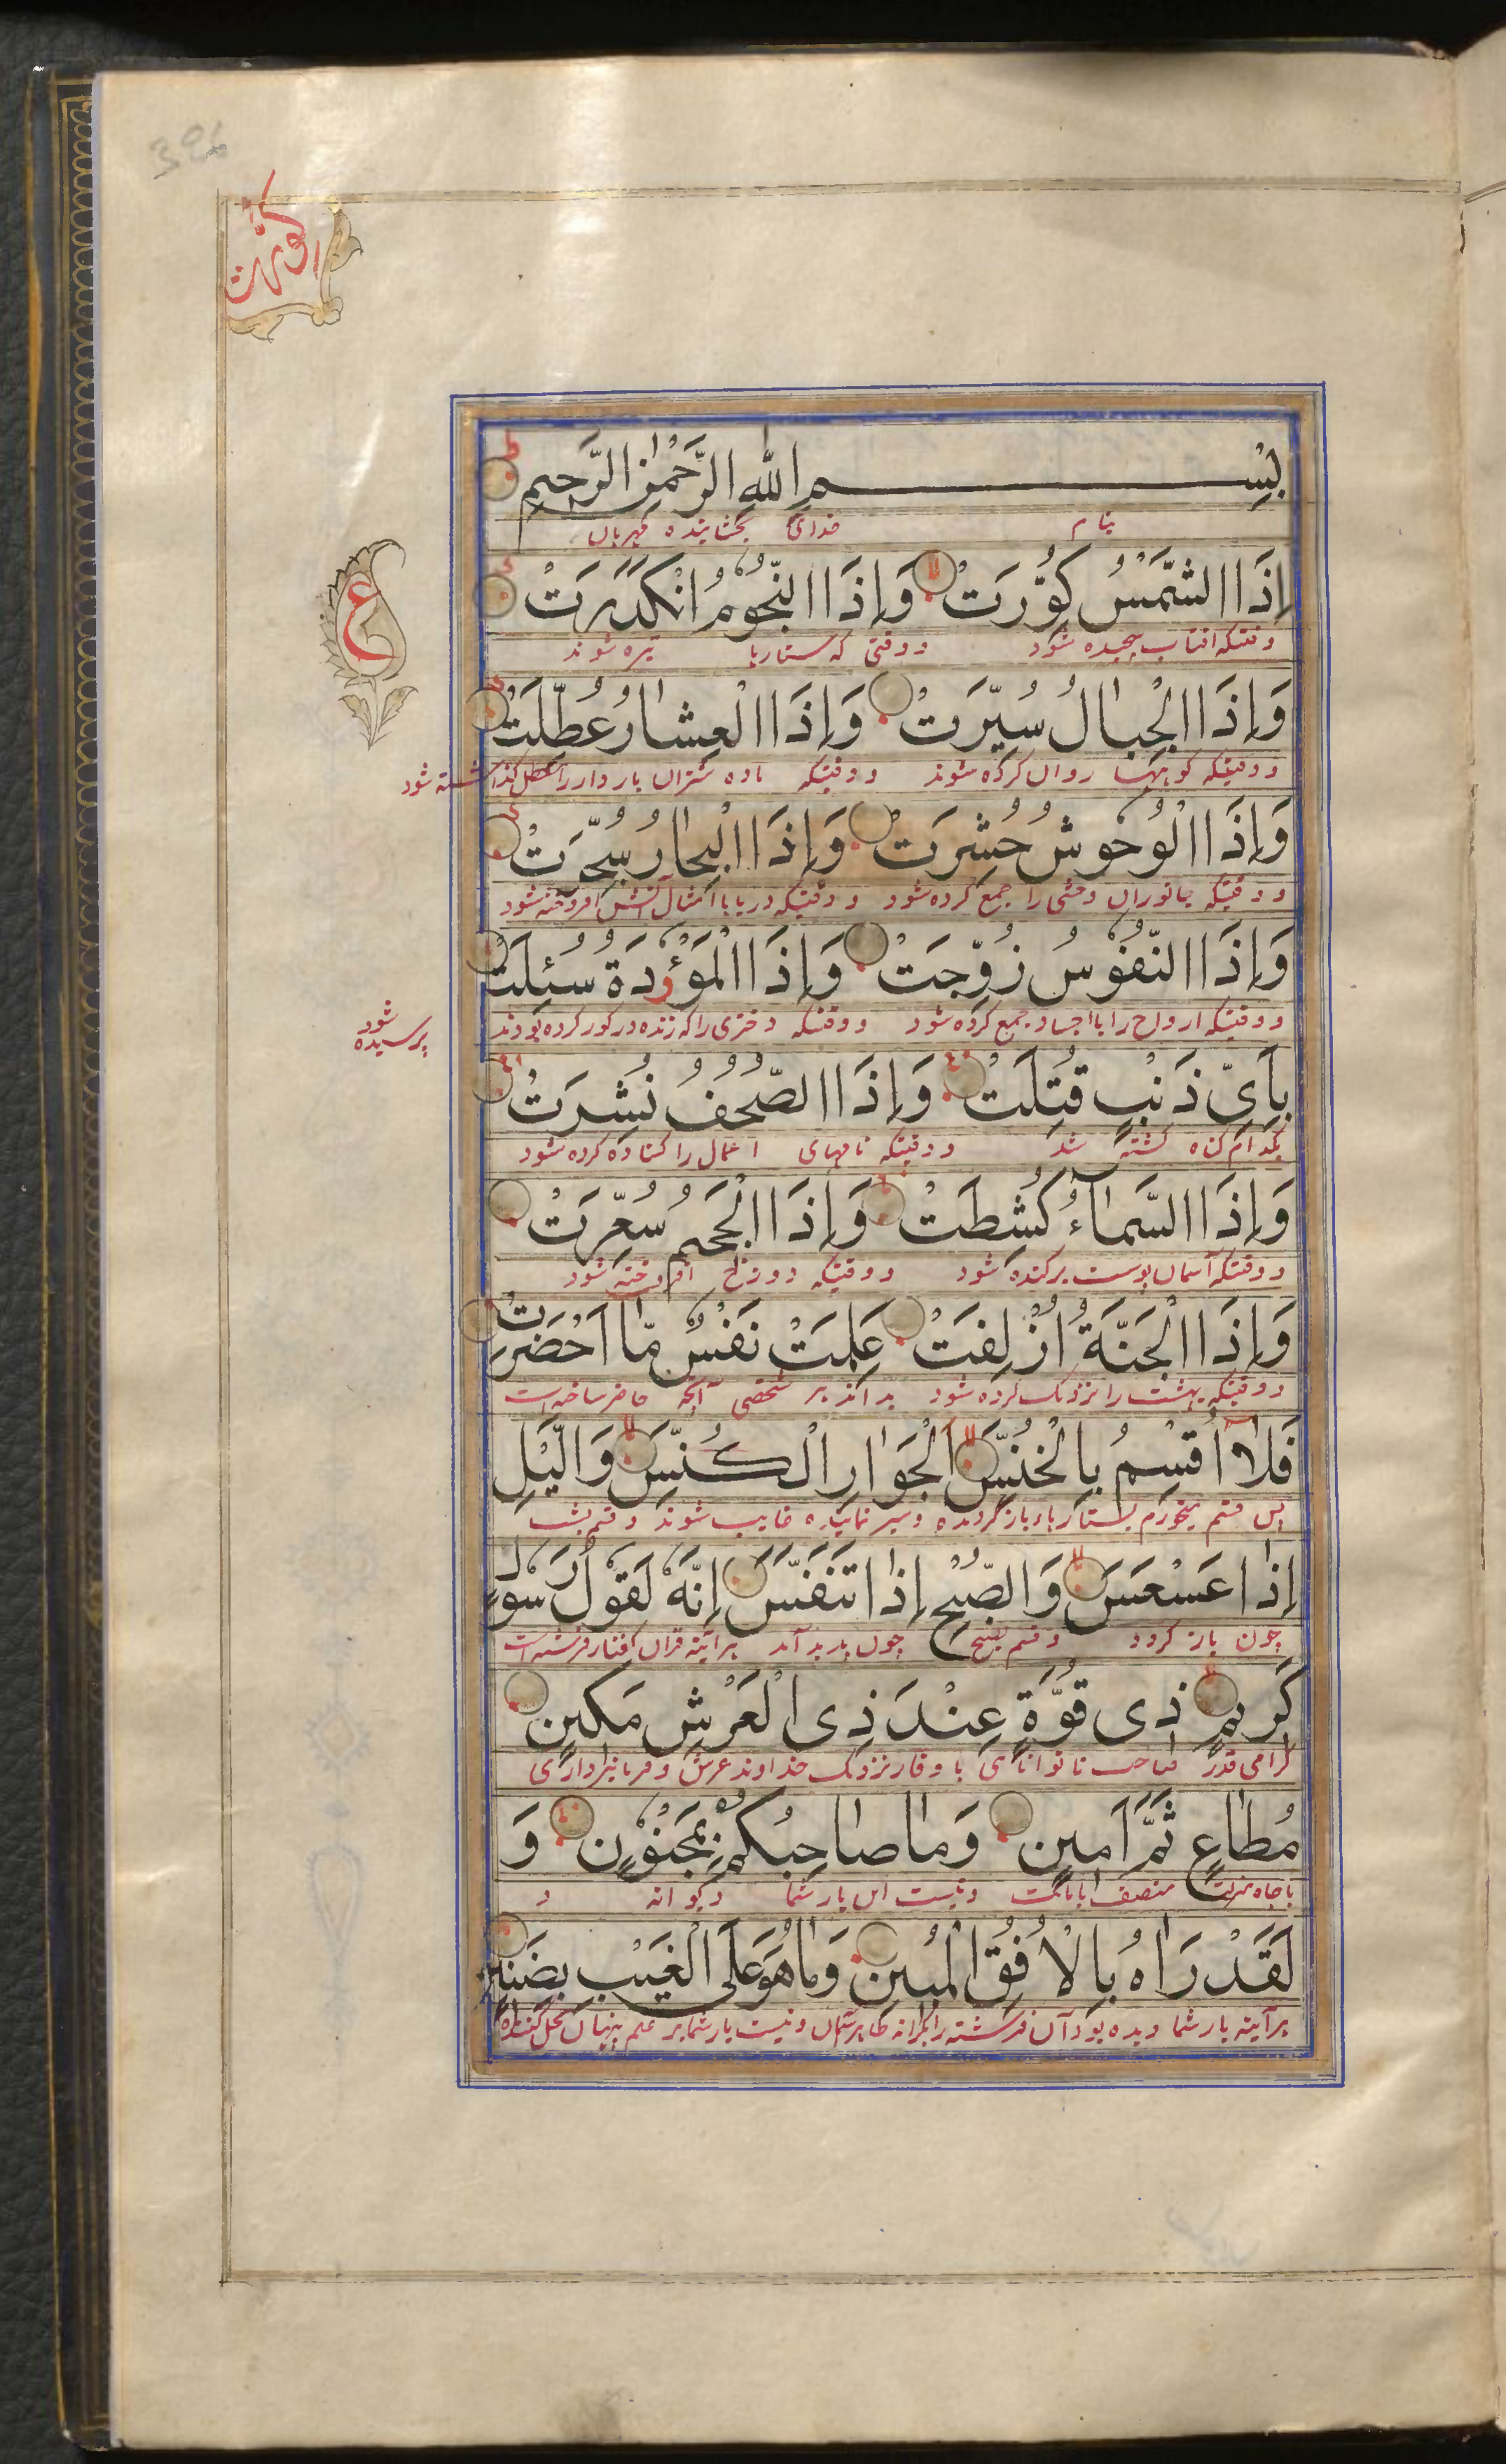 396
كورت
بِسْمِ اللهِ الرَّحْمٰنِ الرَّحِيمِ
بنام خدای بخشاینده مهربان
إِذَا الشَّمْسُ كُوِّرَتْ وَإِذَا النُّجُومُ انْكَدَرَتْ
وقتیکه افتاب پیچیده شود و وقتی که ستارها تیره شوند
وَإِذَا الْجِبَالُ سُيِّرَتْ وَإِذَا الْعِشَارُ عُطِّلَتْ
و وقتیکه کوهها روان کرده شوند و وقتیکه ماده شتران باردار را معطل گذاشته شود
وَإِذَا الْوُحُوشُ حُشِرَتْ وَإِذَا الْبِحَارُ سُجِّرَتْ
و وقتیکه جانوران وحشی را جمع کرده شود و وقتیکه دریاها امثال آتش افروخته شود
وَإِذَا النُّفُوْسُ زُوِّجَتْ وَإِذَا الْمَوْءٗدَةُ سُئِلَتْ
و وقتیکه ارواح را با اجساد جمع کرده شود و وقتیکه دختری را که زنده در کور کرده بودند
پرسیده شود
ع
بِاَيِّ ذَنْبٍ قُتِلَتْ وَإِذَا الصُّحُفُ نُشِرَتْ
بکدام کناه کشته شد و وقتیکه نامهای اعمال را کشاده کرده شود
وَإِذَا السَّمَآءُ كُشِطَتْ وَإِذَا الْجَحِيمُ سُعِّرَتْ
و وقتیکه آسمان پوست برکنده شود و وقتیکه دوزخ افروخته شود
وَإِذَا الْجَنَّةُ اُزْلِفَتْ عَلِمَتْ نَفْسٌ مَّا اَحْضَرَتْ
و وقتیکه بهشت را نزدیک کرده شود بداند هر شخصی آنچه حاضر ساخته است
فَلَآ اُقْسِمُ بِالْخُنَّسِ الْجَوَارِ الْكُنَّسِ وَالَّيْلِ
پس قسم میخورم بستارهاء بازگردنده وسیر نماینده غایب شونده و قسم بشب
إِذَا عَسْعَسَ وَالصُّبْحِ إِذَا تَنَفَّسَ إِنَّهٗ لَقَوْلُ رَسُولٍ
چون باز گردد و قسم بصبح چون پدید آمد هرآئینه قران گفتار فرشته است
كَرِيمٍ ذِى قُوَّةٍ عِنْدَ ذِى الْعَرْشِ مَكِينٍ
گرامی قدر صاحب توانای با وقار نزدیک خداوند عرش و فرمانبرداری
مُطَاعٍ ثَمَّ اَمِينٍ وَمَا صَاحِبُكُمْ بِمَجْنُوْنٍ وَ
با جاه منصف و نیست این یار شما دیوانه و
لَقَدْ رَاٰهُ بِالْاُفُقِ الْمُبِينِ وَمَا هُوَ عَلَى الْغَيْبِ بِضَنِينٍ
هرآئینه یار شما دیده بود آن فرشته را بکرانه ظاهر آسمان و نیست یار شما بر علم پنهان بخل کننده